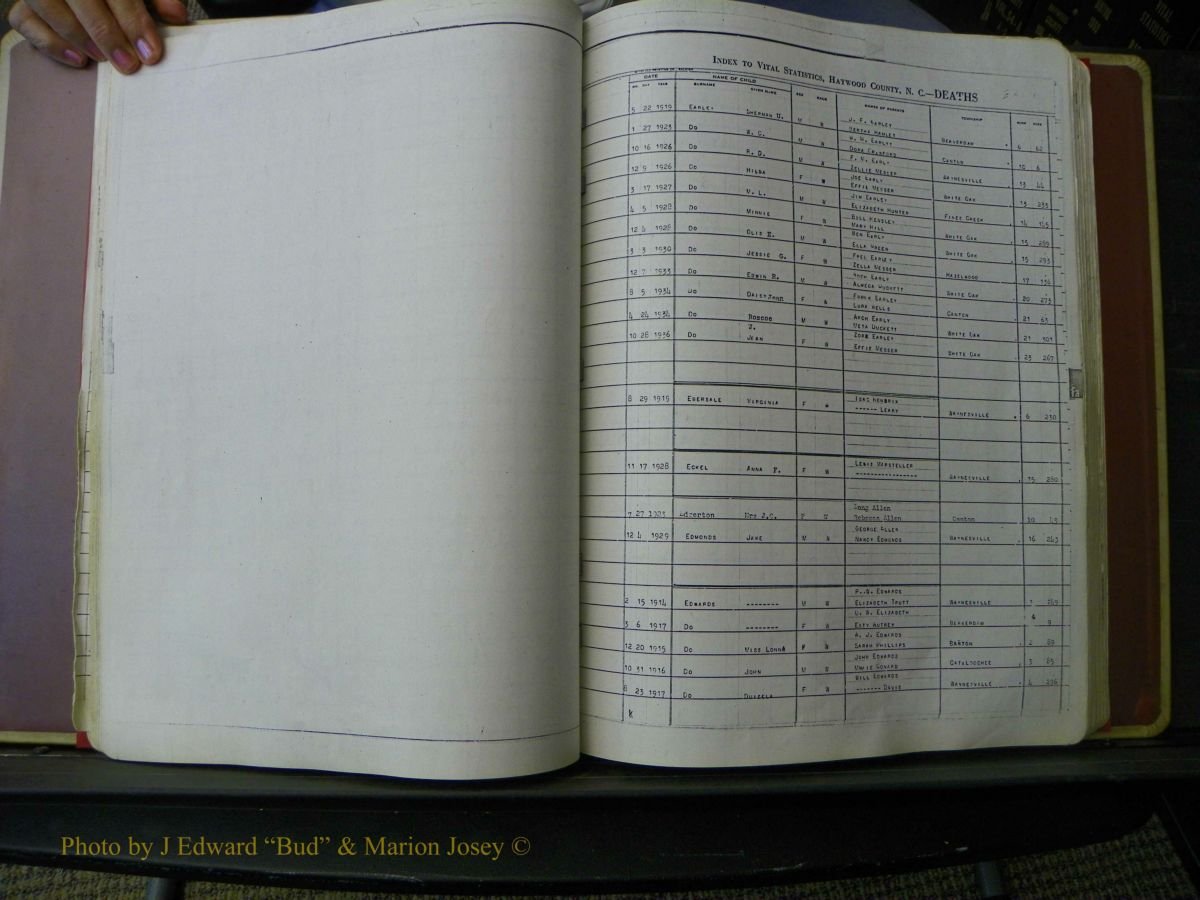 INDEX TO VITAL STATISTICS, HAYWOOD COUNTY, N. C.—DEATHS
DATE NAME OF CHILD
SURNAME GIVEN NAME SEX RACE NAMES OF PARENTS TOWNSHIP BOOK PAGE
5 22 1919 EARLEY SHERMAN U. M W J. F. EARLEY
BERTHA HANLEY BEAVERDAM 6 62
1 27 1923 DO W. C. M W W. W. EARLEY
DORA CRAWFORD CANTON 10 6
10 16 1926 DO R. D. M W F. V. EARLY
ZELLIE MESSER WAYNESVILLE 13 44
12 9 1926 DO HILDA F W JOE EARLY
EFFIE MESSER WHITE OAK 13 233
3 17 1927 DO V. L. M W JIM EARLEY
ELIZABETH HUNTER FINES CREEK 14 145
4 5 1928 DO MINNIE F W BILL HENSLEY
MARY HILL WHITE OAK 15 299
12 4 1928 DO OLIS E. M W BEN EARLY
ELLA GREEN WHITE OAK 15 293
3 3 1930 DO JESSIE G. F W FRED EARLEY
ZELLA MESSER HAZELWOOD 17 136
12 7 1933 DO EDWIN R. M W ARCH EARLY
ALMEDA DUCKETT WHITE OAK 20 273
8 5 1934 DO DAISY JANE F W FRANK EARLEY
LURA WELLS CANTON 21 63
4 24 1934 DO ROSCOE Z. M W ARCH EARLY
META DUCKETT WHITE OAK 21 301
10 28 1936 DO JEAN F W ZORE EARLEY
EFFIE MESSER WHITE OAK 23 267
8 29 1919 EBERSALE VIRGINIA F W ISAC HENDRIX
------ LEARY WAYNESVILLE 6 230
11 17 1928 ECKEL ANNA F. F W LEWIS MARSTELLER
----------------- WAYNESVILLE 15 280
7 27 1923 Edgerton Mrs J.C. F W Long Allen
Rebecca Allen Canton 10 43
12 4 1929 EDMONDS JAKE M N GEORGE ELLER
NANCY EDMONDS WAYNESVILLE 16 243
2 15 1914 EDWARDS -------- M W P. B. EDWARDS
ELIZABETH TRUTT WAYNESVILLE 1 249
3 6 1917 DO -------- F W U. A. ELIZABETH
EFFY AUTREY BEAVERDAM 4 9
12 20 1915 DO MISS LONNA F W A. J. EDWARDS
SARAH PHILLIPS BARTON 2 89
10 31 1916 DO JOHN M W JOHN EDWARDS
CATALOOCHEE 3 85
8 23 1917 DO F W BILL EDWARDS
------ DAVIS WAYNESVILLE 4 236
Photo by J Edward “Bud” & Marion Josey ©